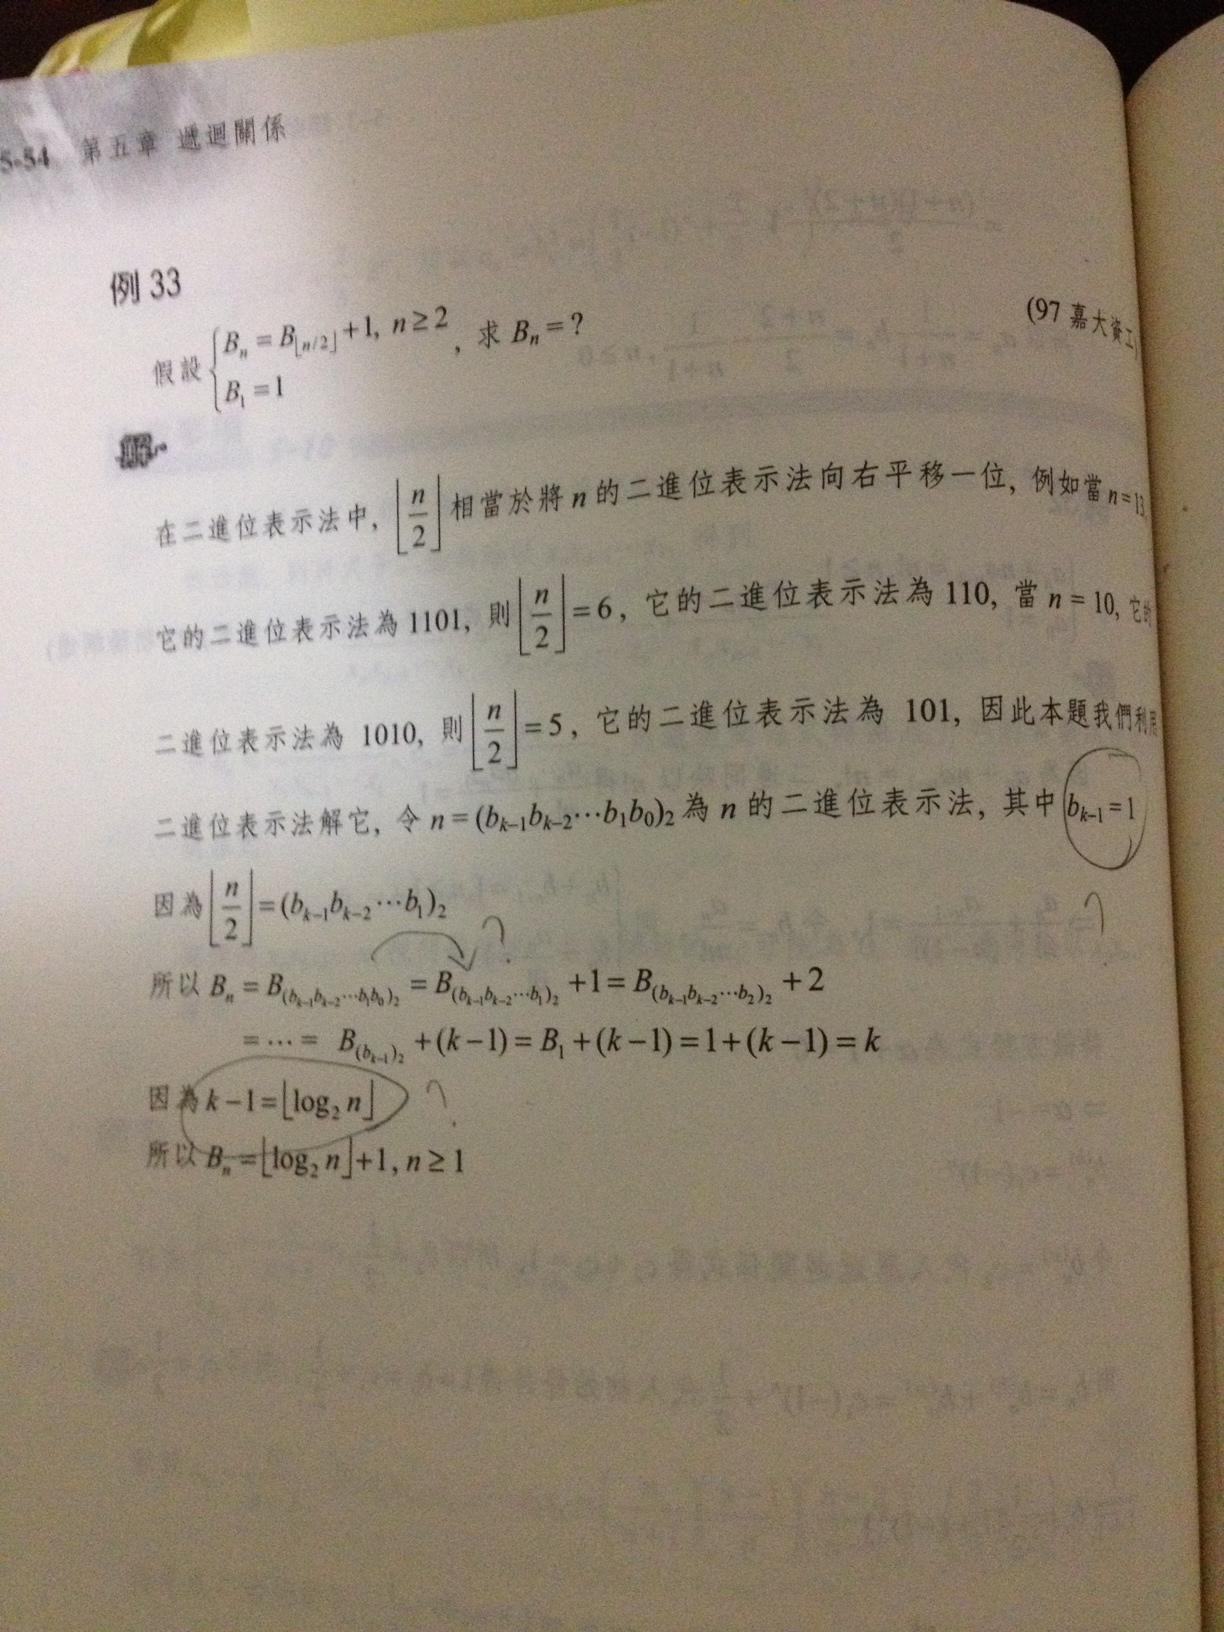 5-54 第五章 遞迴關係
例 33
假設 { Bₙ = B_{⌊n/2⌋} + 1, n ≥ 2 , 求 Bₙ = ? (97 嘉大資工)
B₁ = 1
解
在二進位表示法中, ⌊n/2⌋ 相當於將 n 的二進位表示法向右平移一位, 例如當 n = 13,
它的二進位表示法為 1101, 則 ⌊n/2⌋ = 6, 它的二進位表示法為 110, 當 n = 10, 它的
二進位表示法為 1010, 則 ⌊n/2⌋ = 5, 它的二進位表示法為 101, 因此本題我們利用
二進位表示法解它, 令 n = (b_{k-1}b_{k-2}⋯b₁b₀)₂ 為 n 的二進位表示法, 其中 b_{k-1} = 1
因為 ⌊n/2⌋ = (b_{k-1}b_{k-2}⋯b₁)₂
? ?
所以 Bₙ = B_{(b_{k-1}b_{k-2}⋯b₁b₀)₂} = B_{(b_{k-1}b_{k-2}⋯b₁)₂} + 1 = B_{(b_{k-1}b_{k-2}⋯b₂)₂} + 2
= ⋯ = B_{(b_{k-1})₂} + (k-1) = B₁ + (k-1) = 1 + (k-1) = k
因為 k-1 = ⌊log₂ n⌋ ?
所以 Bₙ = ⌊log₂ n⌋ + 1, n ≥ 1